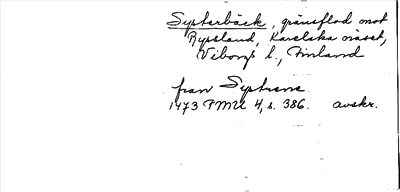 Systerbäck, gränsflod mot
Ryssland, Karelska näset,
Viborgs l., Finland
fran Systrene
1473 FMU 4, s. 386. avskr.